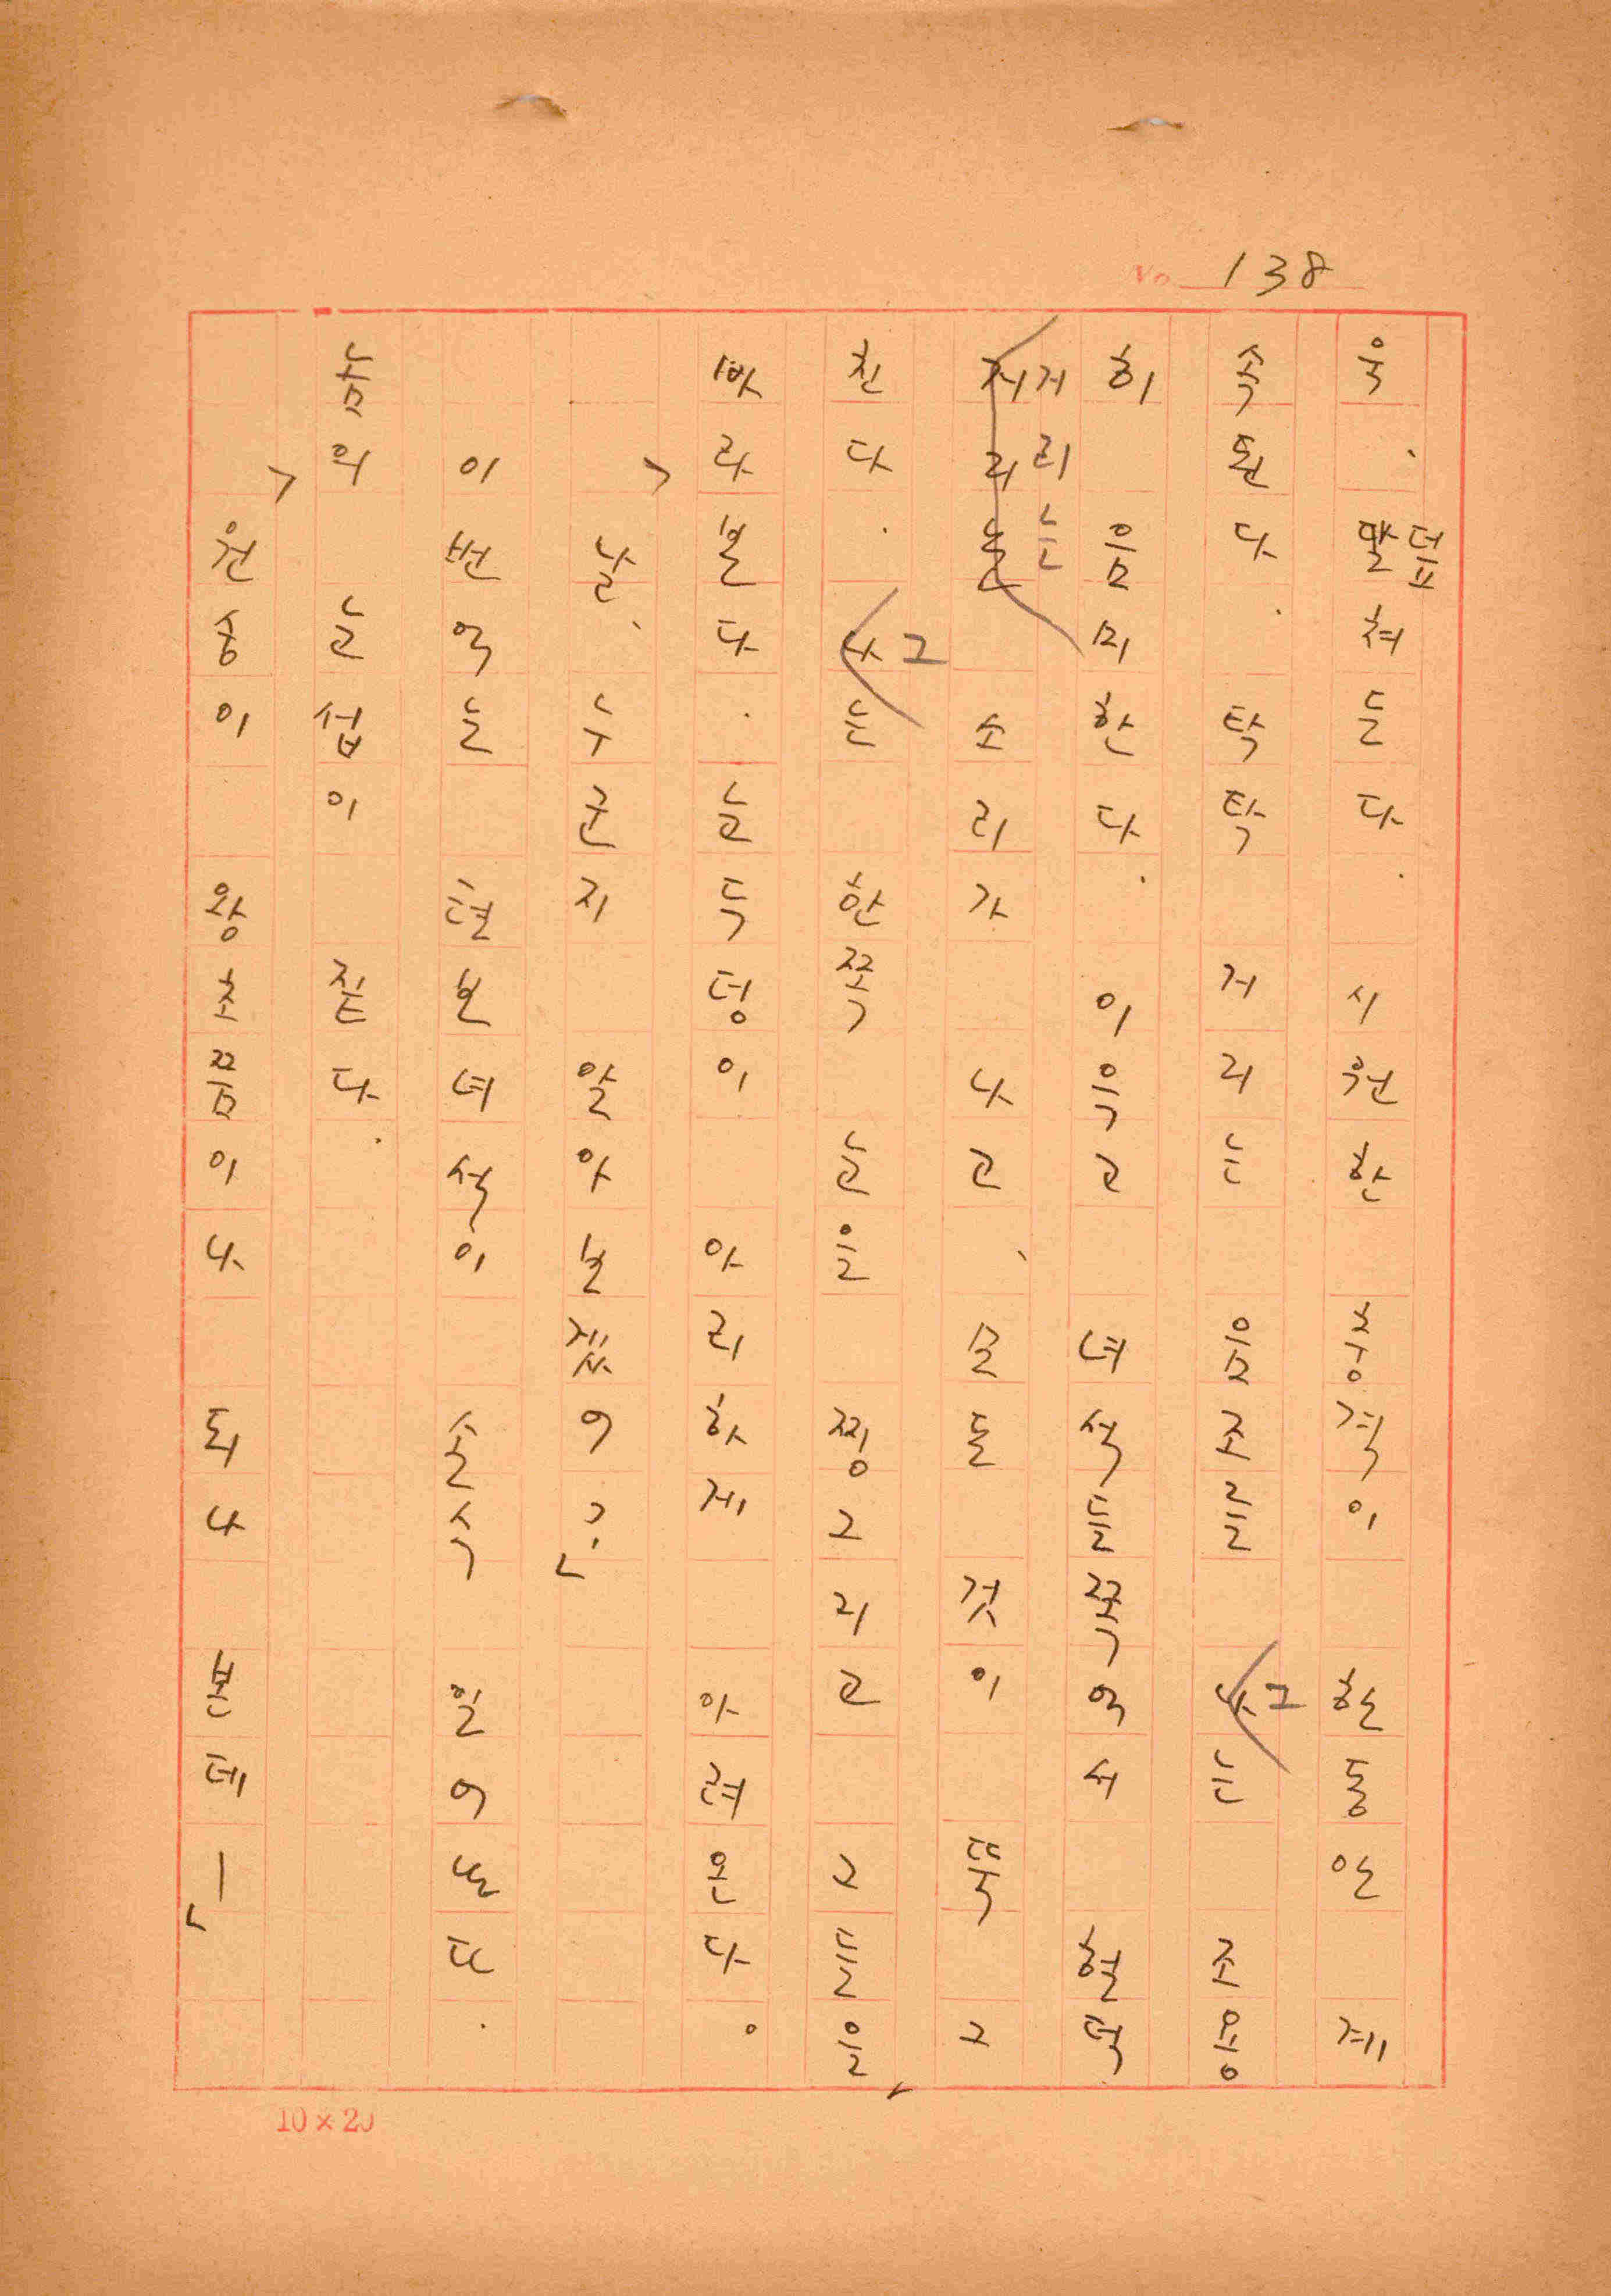 No. 138
욱. 맡덮쳐 든다. 시원한 충격이 한동안 계
속된다. 탁탁 거리는 음조를 나그는 조용
히 음미한다. 이윽고 녀석들쪽에서 헐떡
저리는거리는 소리가 나고, 모든 것이 뚝 그
친다. 나그는 한쪽 눈을 찡그리고 그들을,
바라본다. 눈두덩이 아리하게 아려온다.
「날, 누군지 알아보겠어?」
이번에는 녀석이 일어난다.
남의 눈섭이 짙다.
「원숭이 왕초쯤이나 되나 본데―」
10×20